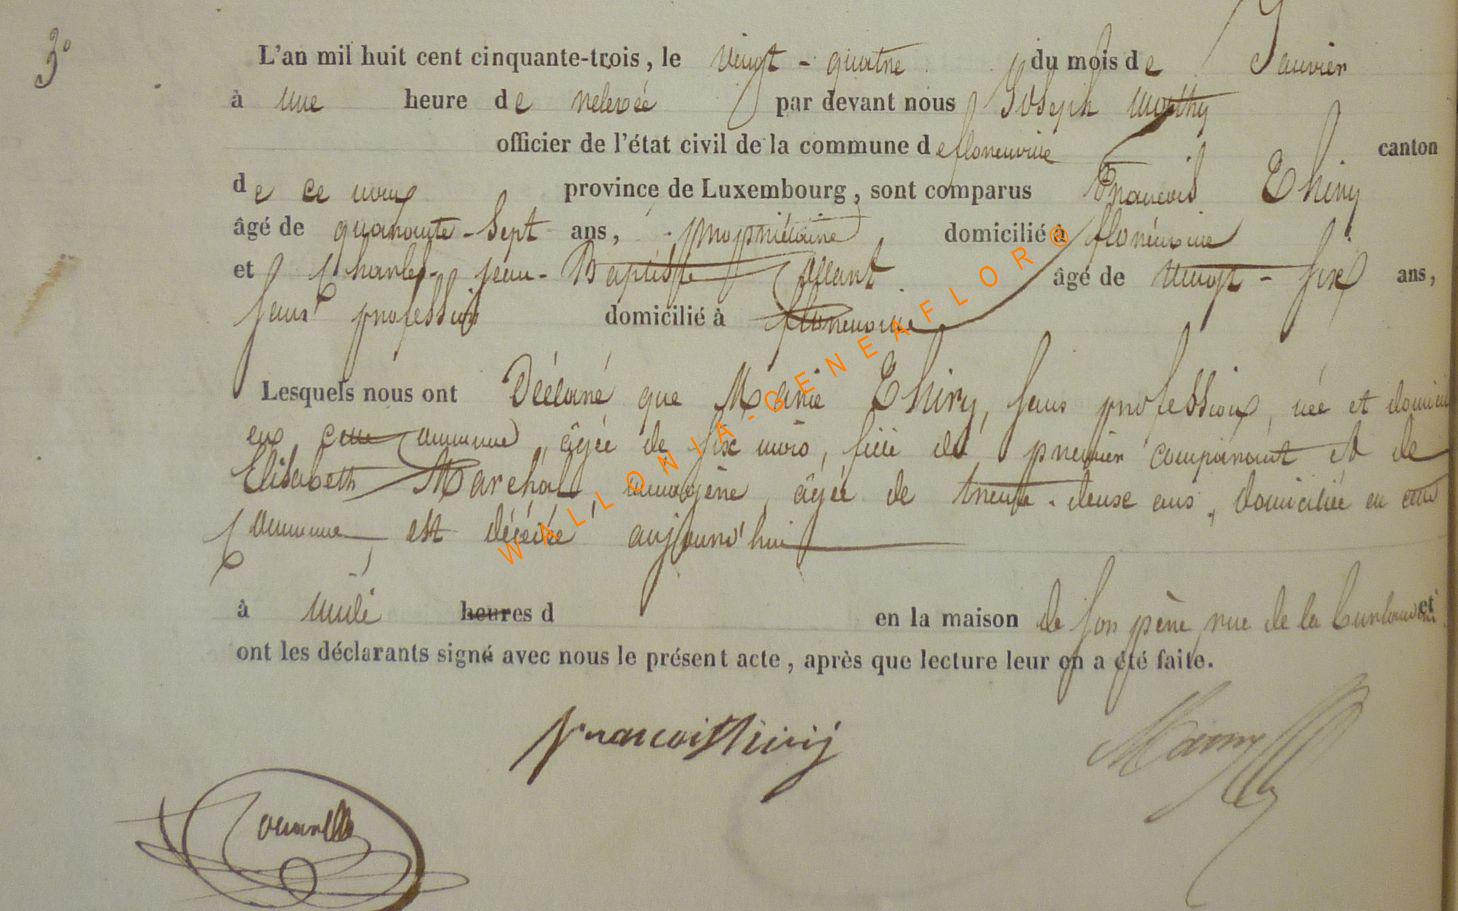 3°
L'an mil huit cent cinquante-trois, le vingt-quatre du mois de Janvier
à une heure de relevée par devant nous Joseph
officier de l'état civil de la commune de florenville canton
de ce nom province de Luxembourg, sont comparus François Thiry
âgé de quarante-Sept ans, propriétaire domicilié à florenville
et Charles-jean-Baptiste âgé de vingt-six ans,
sans profession domicilié à florenville
Lesquels nous ont Déclaré que Marie Thiry, sans profession, née et domiciliée
en cette commune, âgée de six mois, fille du premier comparant et de
Elisabeth Maréchal, ménagère, âgée de trente-deux ans, domiciliée en cette
Commune, est décédée aujourd'hui
à midi heures d en la maison de son père, rue de la et
ont les déclarants signé avec nous le présent acte, après que lecture leur en a été faite.
francois thiry
WALLONIA-GENEAFLOR©